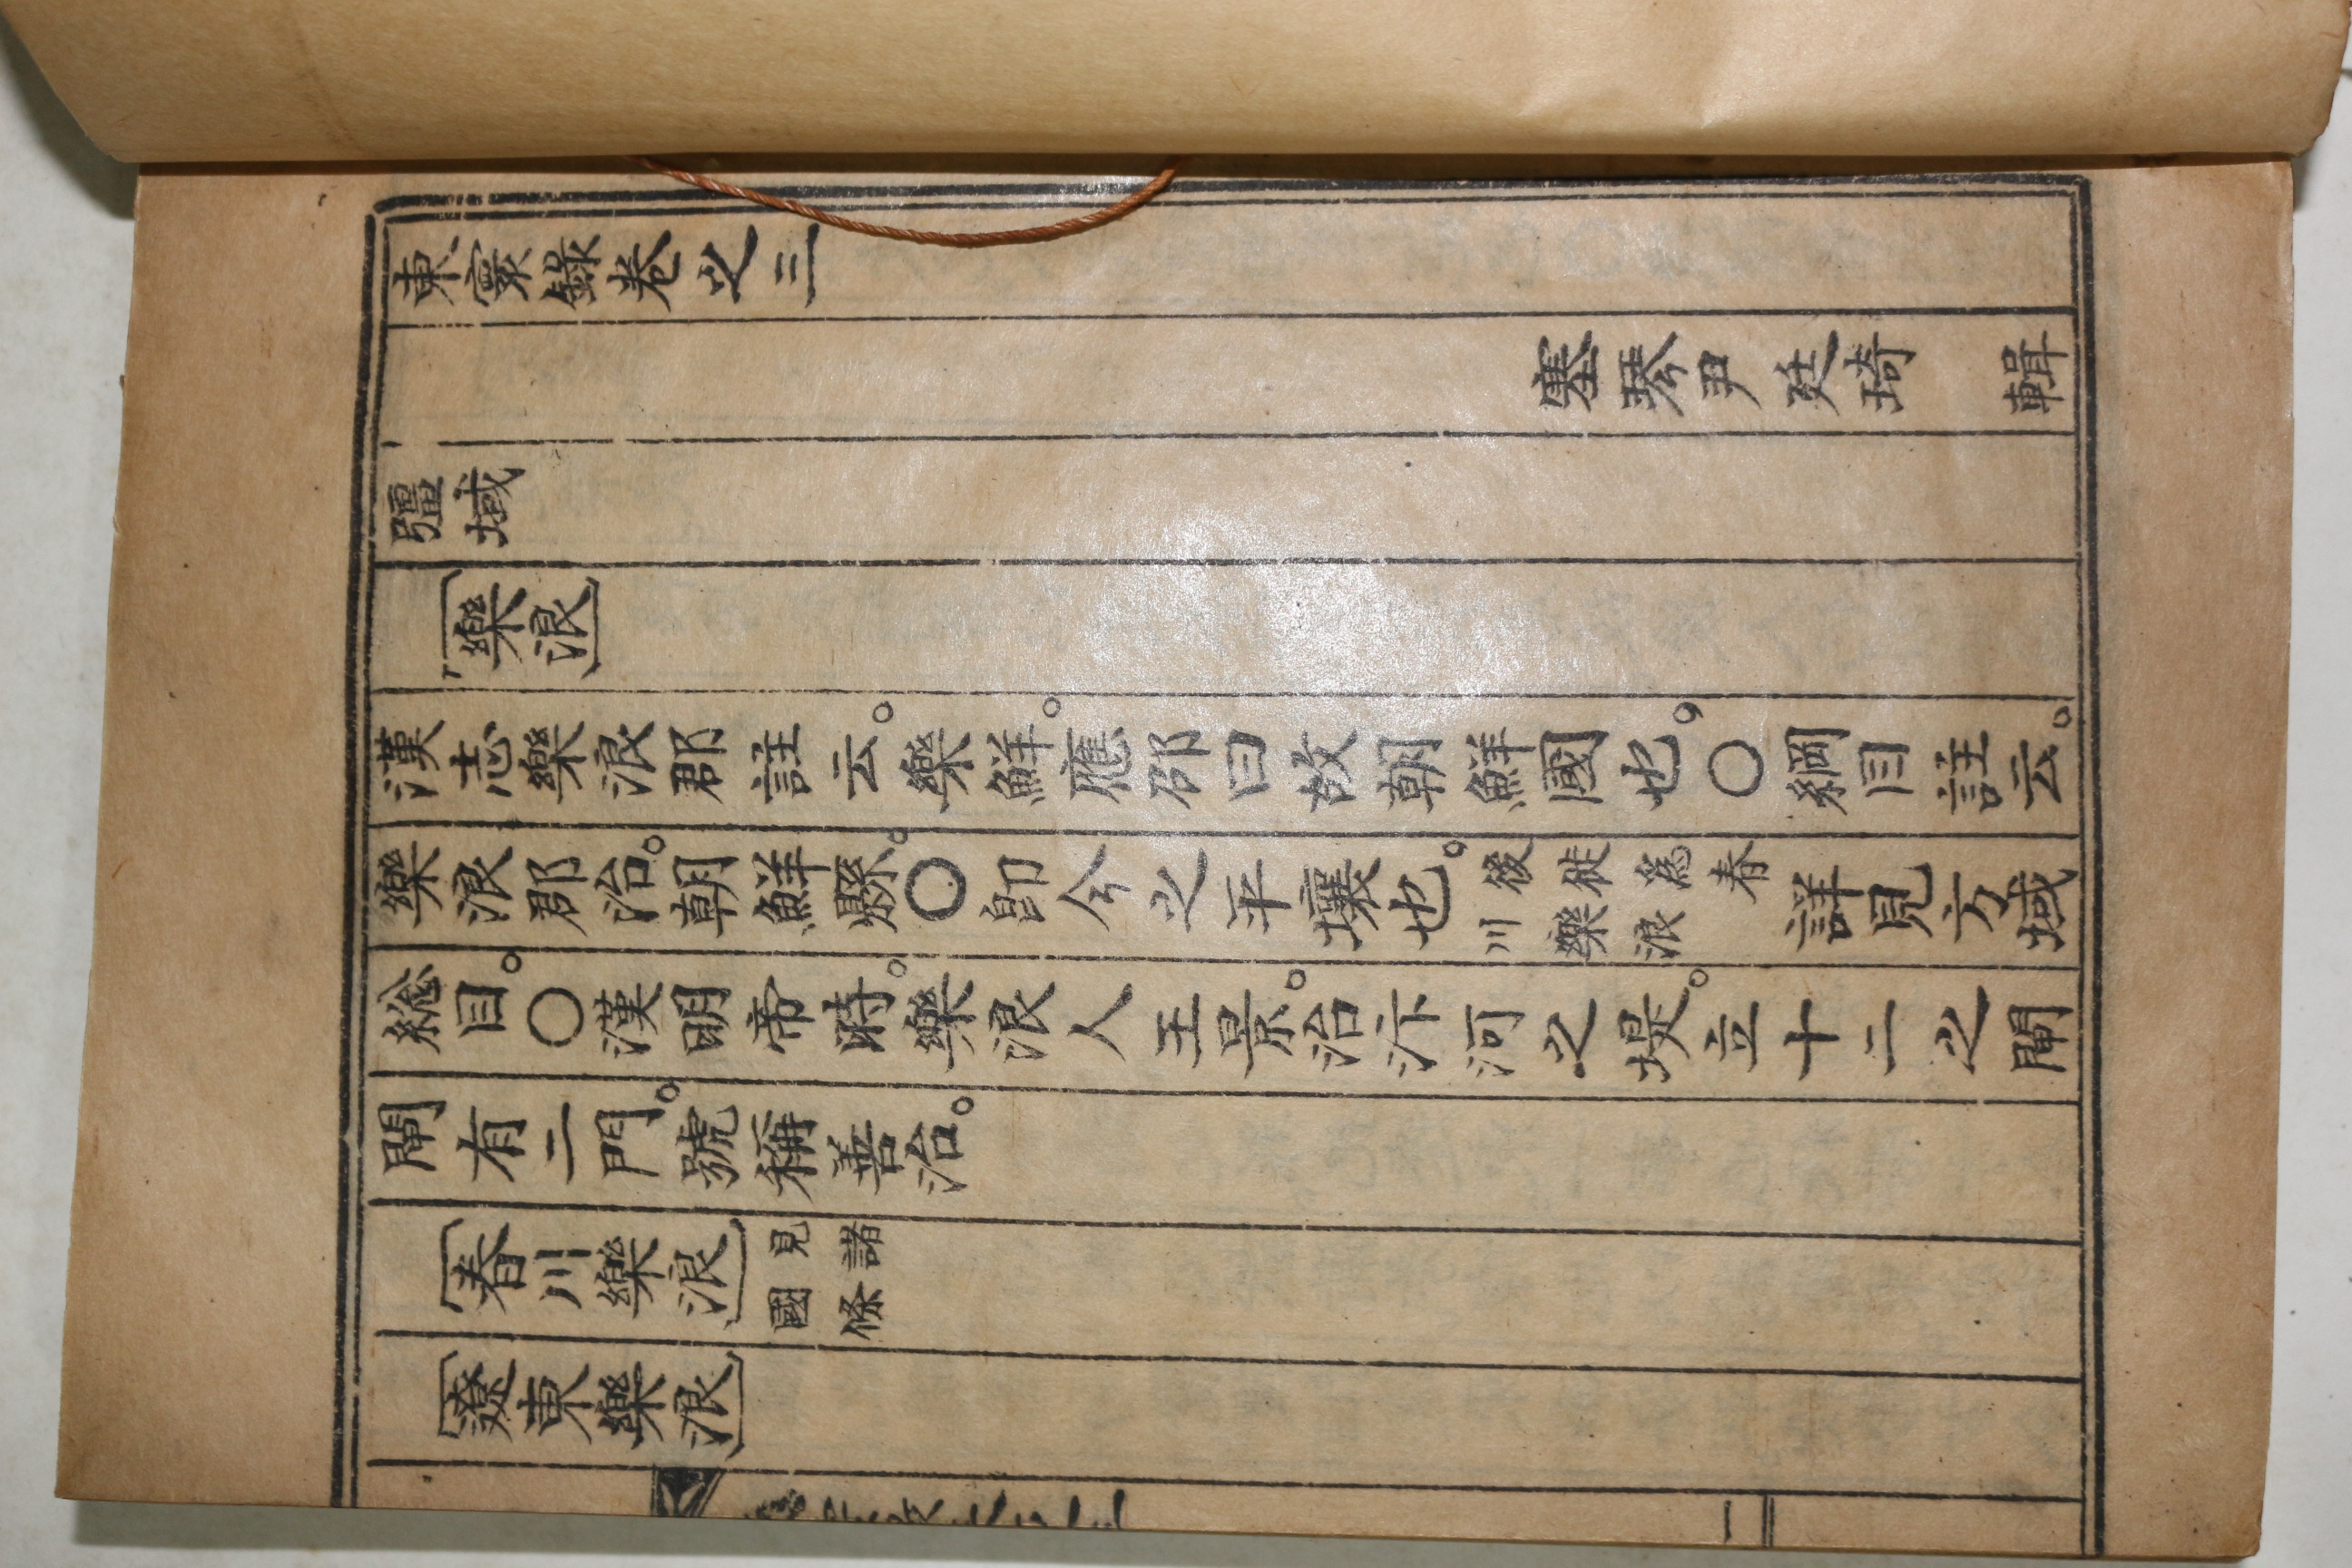 東寰錄卷之三
塞琴尹廷琦 輯
彊域
[樂浪]
漢志樂浪郡註云。樂鮮。應邵曰故朝鮮國也。〇綱目註云。
樂浪郡治。朝鮮縣。〇卽今之平壤也。後徙爲春川樂浪 詳見方域
総目。〇漢明帝時。樂浪人王景。治汴河之堤。立十二之閘
閘有二門。號稱善治。
[春川樂浪]見諸國條
[遼東樂浪]
一